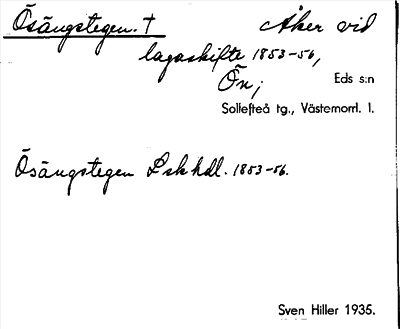 Ösängstegen. † Åker vid
lagaskifte 1853-56,
Ön; Eds s:n
Sollefteå tg., Västernorrl. l.
Ösängstegen Lskhdl. 1853-56.
Sven Hiller 1935.